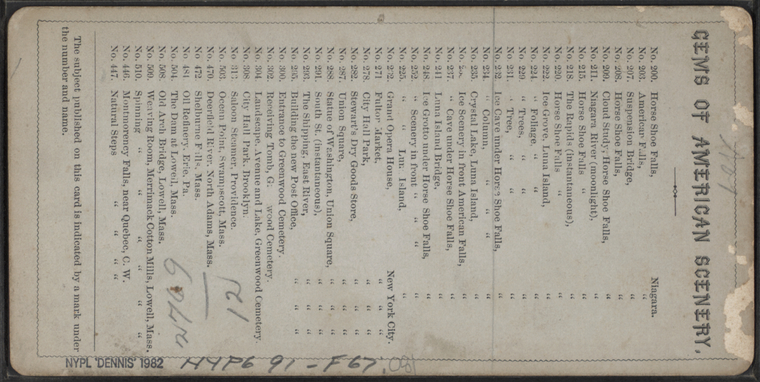 GEMS OF AMERICAN SCENERY,
No. 200. Horse Shoe Falls, Niagara.
No. 203. American Falls, "
No. 207. Suspension Bridge, "
No. 208. Horse Shoe Falls, "
No. 209. Cloud Study: Horse Shoe Falls, "
No. 211. Niagara River (moonlight), "
No. 218. The Rapids (instantaneous), "
No. 215. Horse Shoe Falls "
No. 220. Horse Shoe Falls "
No. 222. Ice Grove, Luna Island, "
No. 224. " Foliage, "
No. 229. " Trees, "
No. 231. " Tree, "
No. 232. Ice Cave under Horse Shoe Falls, "
No. 234. " Column, " "
No. 235. Crystal Lake, Luna Island, "
Ice Scenery in front American Falls, "
No. 237. " Cave under Horse Shoe Falls, "
No. 241. Luna Island Bridge, "
No. 248. Ice Grotto under Horse Shoe Falls, "
No. 252. " Scenery in front " " "
No. 225. " " Luna Island, "
No. 272. Grand Opera House, New York City.
No. 271. Fulton Market, "
No. 278. City Hall Park, "
No. 282. Stewart's Dry Goods Store, "
No. 287. Union Square, "
No. 288. Statue of Washington, Union Square, "
No. 291. South St. (instantaneous), "
No. 293. The Shipping, East River, "
No. 295. Building the new Post Office, "
No. 300. Entrance to Greenwood Cemetery.
No. 302. Receiving Tomb, G wood Cemetery.
No. 304. Landscape, Avenue and Lake, Greenwood Cemetery.
No. 308. City Hall Park, Brooklyn.
No. 317. Saloon Steamer, Providence.
No. 503. Ocean Point, Swampscott, Mass.
No. 470. Deerfield River, North Adams, Mass.
No. 472. Shelburne Falls, Mass.
No. 484. Oil Refinery, Erie, Pa.
No. 504. The Dam at Lowell, Mass.
No. 508. Old Arch Bridge, Lowell, Mass.
No. 509. Weaving Room, Merrimack Cotton Mills, Lowell, Mass.
No. 510. Spinning " " " "
No. 446. Montmorency Falls, near Quebec, C. W.
No. 447. Natural Steps " " "
The subject published on this card is indicated by a mark under
the number and name.
NYPL 'DENNIS' 1982